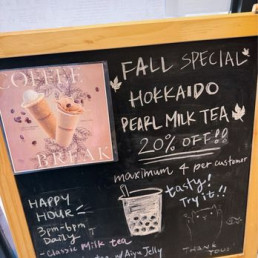 COFFEE
BREAK
FALL SPECIAL
HOKKAIDO
PEARL MILK TEA
20% OFF!!
maximum 4 per customer
tasty!
Try it!!
HAPPY
HOUR
3pm-6pm
Daily
- Classic Milk tea
w/ Aiyu Jelly
THANK
YOU!